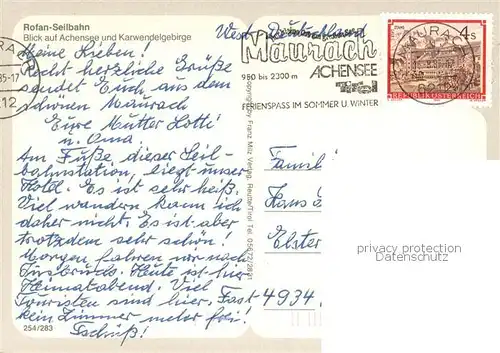 Rofan-Seilbahn
Blick auf Achensee und Karwendelgebirge
West Deutschland
Meine Lieben!
Recht herzliche Grüße
sendet Euch aus dem
schönen Maurach
Eure Mutter Lotti
u. Oma.
Am Fuße, dieser Seil-
bahnstation, liegt unser
Hotel. Es ist sehr heiß.
Viel wandern kann ich
daher nicht. Es ist aber
trotzdem sehr schön!
Morgen fahren wir nach
Insbruck. Heute ist hier
Heimatabend. Viel
Touristen sind hier. Fast
kein Zimmer mehr frei!
Tschüß!
254/283
Copyright by Franz Milz Verlag, Reutte/Tirol Tel. 056/2/2831
85-17
212
Maurach
980 bis 2300 m
ACHENSEE
Tirol
FERIENSPASS IM SOMMER U. WINTER
4 S
REPUBLIK ÖSTERREICH
MAURACH
Famili
Hans
Elster
4934
privacy protection
Datenschutz